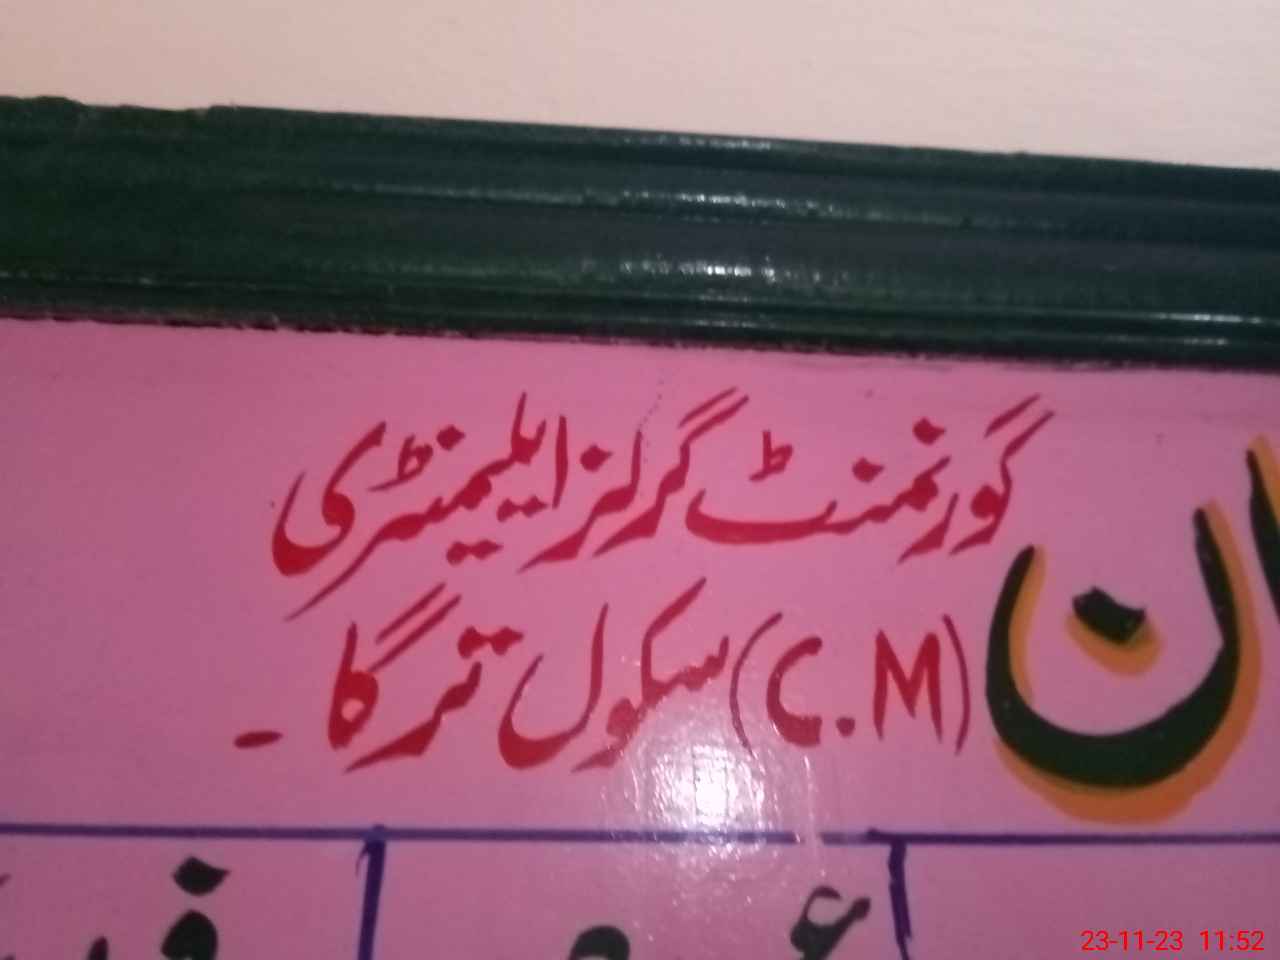 گورنمنٹ گرلز ایلیمنٹری
(C.M) سکول ترگا۔
23-11-23 11:52